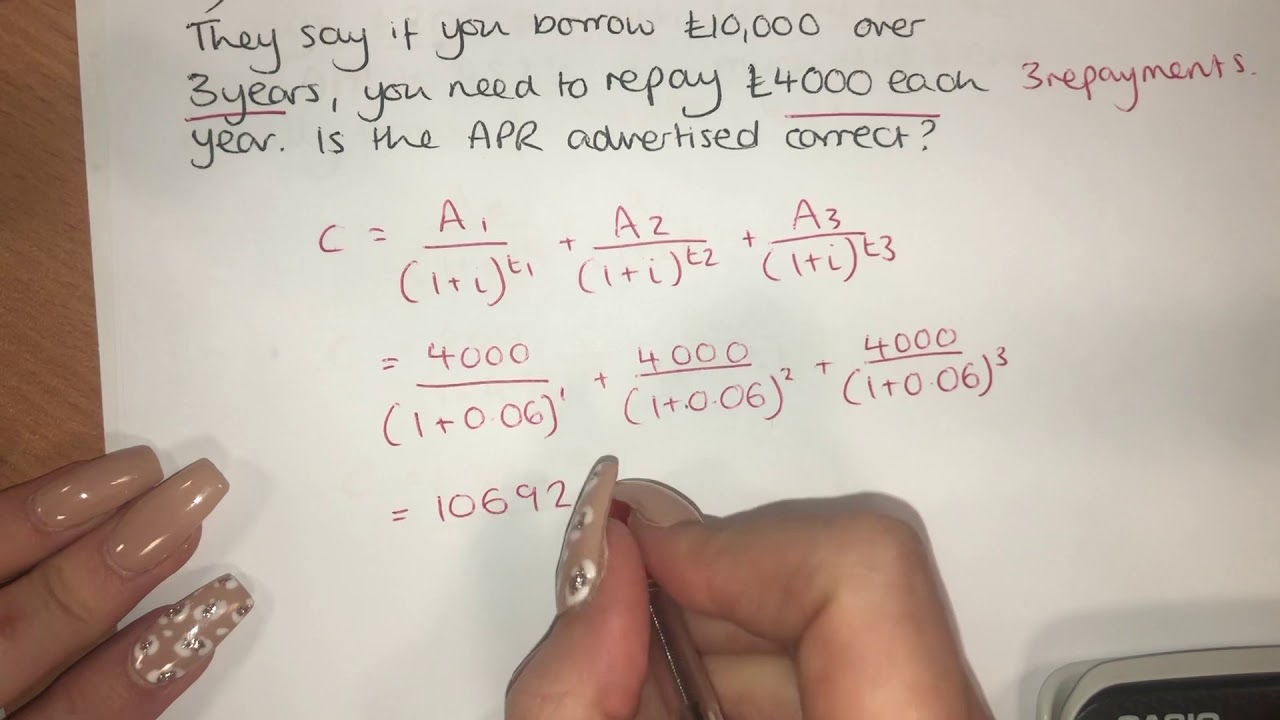 They say if you borrow £10,000 over
3 years, you need to repay £4000 each 3 repayments.
year. Is the APR advertised correct?
C = A1/(1+i)^t1 + A2/(1+i)^t2 + A3/(1+i)^t3
= 4000/(1+0.06)^1 + 4000/(1+.0.06)^2 + 4000/(1+0.06)^3
= 10692
CASIO